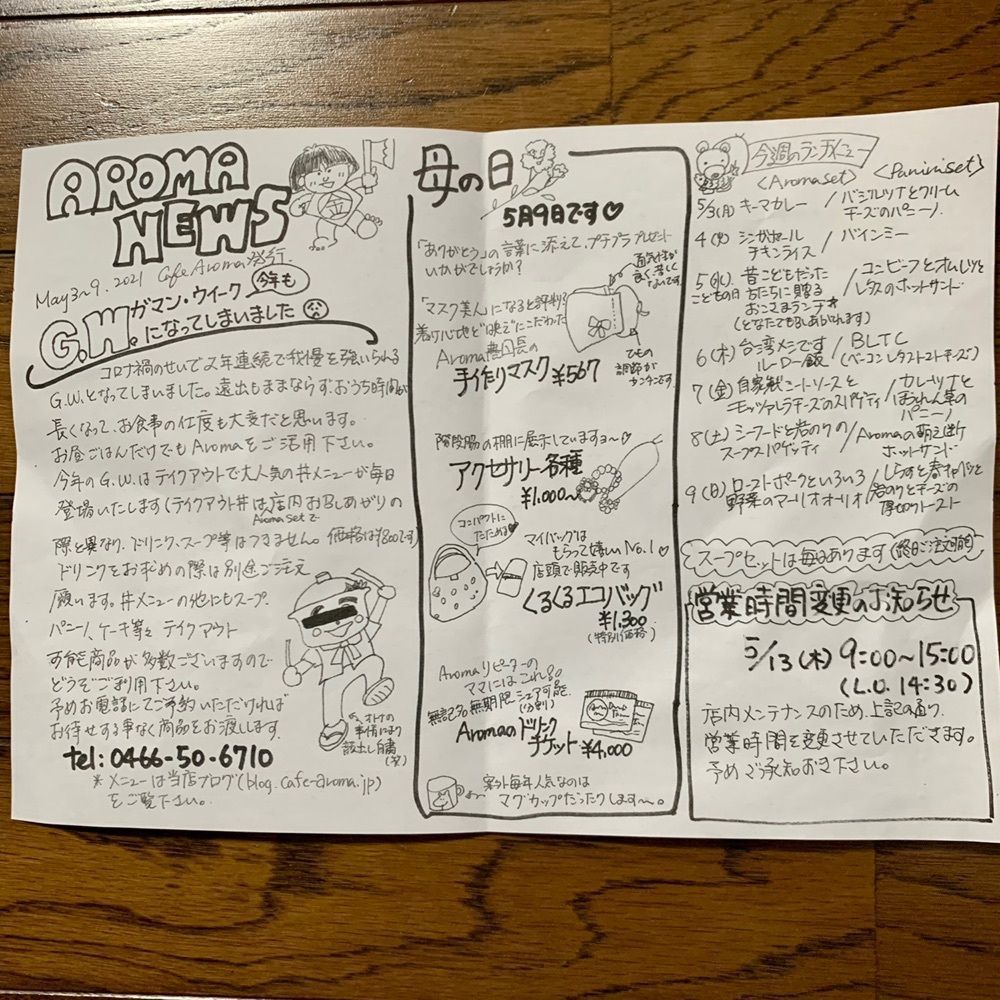 AROMA
NEWS
金
May 3~9, 2021 Cafe Aroma発行
G.W. ガマン・ウイーク 今年も
になってしまいました
コロナ禍のせいで2年連続で我慢を強いられる
G.W.となってしまいました。遠出もままならず、おうち時間が
長くなって、お食事の仕度も大変だと思います。
お昼ごはんだけでもAromaをご活用下さい。
今年のG.W.はテイクアウトで大人気の丼メニューが毎日
登場いたします(テイクアウト丼は店内お召しあがりの
Aroma setで
際と異なり、ドリンク、スープ等はつきません。価格は¥800です)
ドリンクをお求めの際は別途ご注文
願います。丼メニューの他にもスープ、
パニーノ、ケーキ等々テイクアウト
可能商品が多数ございますので
どうぞご利用下さい。
予めお電話にてご予約いただければ
お待せする事なく商品をお渡しします
tel: 0466-50-6710
*メニューは当店ブログ(blog.cafe-aroma.jp)
をご覧下さい。
オトナの
事情により
顔出し自粛
(笑)
母の日
5月9日です♡
「ありがとう」の言葉に添えて、プチプラプレゼント
いかがでしょうか?
通気性が
良く苦しく
ないです
「マスク美人」になると評判?
着け心地と映えにこだわった
Aroma農園長の
手作りマスク ¥567
ひもの
調節が
カンタンです
階段脇の棚に展示しています～♡
アクセサリー各種
¥1,000~
コンパクトに
たためる♡
マイバッグは
もらって嬉しいNo.1♡
店頭で販売中です
くるくるエコバッグ
¥1,300
(特別価格)
Aromaリピーターの
ママにはこれ!
無記名 無期限 シェア可能
(分割)
Aromaのドリンク
チケット ¥4,000
案外毎年人気なのは
マグカップだったりします～。
今週のランチメニュー
<Aroma set> <Panini set>
5/3(月) キーマカレー / バジルツナとクリーム
チーズのパニーノ
4(火) シンガポール / バインミー
チキンライス
5(水) 昔こどもだった / コンビーフとオムレツと
こどもの日 方たちに贈る レタスのホットサンド
おこさまランチ★
(どなたでも召しあがれます)
6(木) 台湾メシです / BLTC
ルーロー飯 (ベーコンレタストマトチーズ)
7(金) 自家製ミートソースと / カレーツナと
モッツァレラチーズのスパゲティ ほうれん草の
パニーノ
8(土) シーフードと岩のりの / Aromaの萌え断ケ
スープスパゲッティ ホットサンド
9(日) ローストポークといろいろ / しらすと春キャベツと
野菜のアーリオオーリオ 岩のりとチーズの
厚切りトースト
スープセットは毎日あります(終日ご注文可能)
営業時間変更のお知らせ
5/13(木) 9:00～15:00
(L.O. 14:30)
店内メンテナンスのため、上記の通り、
営業時間を変更させていただきます。
予めご承知おき下さい。